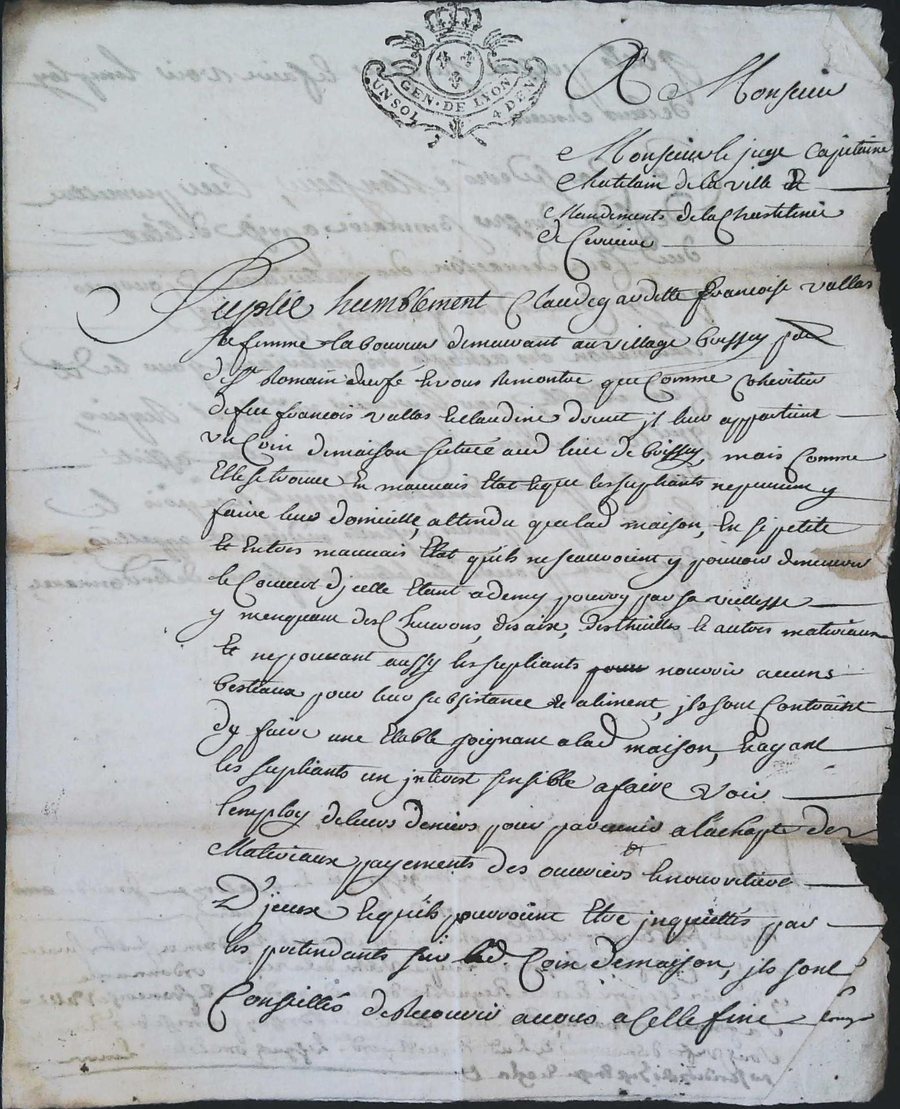 GEN. DE LYON
UN SOL 4 DE.N.
A Monsieur
Monsieur le juge Capitaine
Chatelain de la ville &
Mandements de la Chastelnie
de Cerviere
Suplie humblement Claude gardette francoise vallas
sa femme laboureur demeurant au village boissey parr
de st Romain durfé Et vous Remontre que Comme Coheritier
de feu francois vallas et claudine donnet jl leur appartient
un Coin de maison scitué aud lieu de boissey, mais Comme
Elle se trouve En mauvais Etat Et que les supliants ne peuvent y
faire leur domicille, attendu que lad maison, En si petite
Et En tres mauvais Etat quils ne scauroient y pouvoir demeurer
le Couvert djcelle Etant a demy pourry par sa viellesse
y menquant des Chevrons, des aix, des thuilles et autres materiaux
Et ne pouvant aussy les supliants nourrir aucuns
bestiaux pour leur subsistance et aliment, jls sont Contraint
dy faire une Etable joignant a lad maison, Et ayant
les supliants un jnterest sensible a faire voir
lemploy de leurs deniers pour parvenir a lachapt des
Materiaux payements des ouvriers Et nourriture
D'jceux Et quils pourroient Etre jnquiettés par
les pretendants sur led Coin de maison, jls sont
Conseillés de Recourir a vous a Celle fin